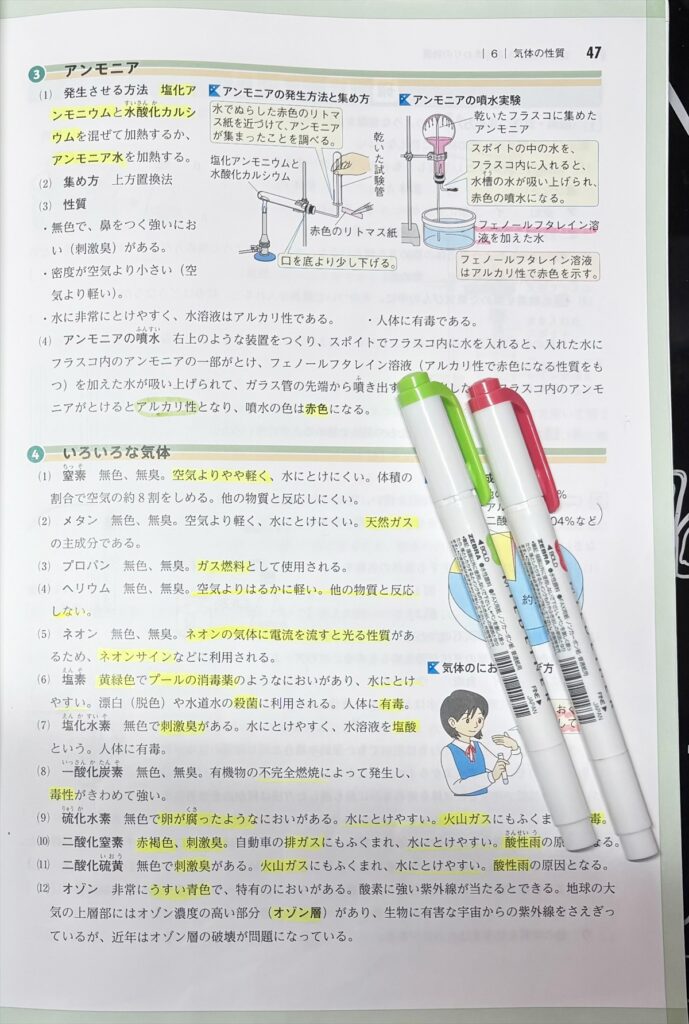 | 6 | 気体の性質 47
3 アンモニア
(1) 発生させる方法 塩化ア
ンモニウムと水酸化カルシ
ウムを混ぜて加熱するか、
アンモニア水を加熱する。
(2) 集め方 上方置換法
(3) 性質
・無色で、鼻をつく強いにお
い（刺激臭）がある。
・密度が空気より小さい（空
気より軽い）。
アンモニアの発生方法と集め方
水でぬらした赤色のリトマ
ス紙を近づけて、アンモニア
が集まったことを調べる。
塩化アンモニウムと
水酸化カルシウム
乾いた試験管
赤色のリトマス紙
口を底より少し下げる。
アンモニアの噴水実験
乾いたフラスコに集めた
アンモニア
スポイトの中の水を、
フラスコ内に入れると、
水槽の水が吸い上げられ、
赤色の噴水になる。
フェノールフタレイン溶
液を加えた水
フェノールフタレイン溶液
はアルカリ性で赤色を示す。
・水に非常にとけやすく、水溶液はアルカリ性である。 ・人体に有毒である。
(4) アンモニアの噴水 右上のような装置をつくり、スポイトでフラスコ内に水を入れると、入れた水に
フラスコ内のアンモニアの一部がとけ、フェノールフタレイン溶液（アルカリ性で赤色になる性質をも
つ）を加えた水が吸い上げられて、ガラス管の先端から噴き出す フラスコ内のアンモ
ニアがとけるとアルカリ性となり、噴水の色は赤色になる。
4 いろいろな気体
(1) 窒素 無色、無臭。空気よりやや軽く、水にとけにくい。体積の
割合で空気の約8割をしめる。他の物質と反応しにくい。
(2) メタン 無色、無臭。空気より軽く、水にとけにくい。天然ガス
の主成分である。
(3) プロパン 無色、無臭。ガス燃料として使用される。
(4) ヘリウム 無色、無臭。空気よりはるかに軽い。他の物質と反応
しない。
(5) ネオン 無色、無臭。ネオンの気体に電流を流すと光る性質があ
るため、ネオンサインなどに利用される。
(6) 塩素 黄緑色でプールの消毒薬のようなにおいがあり、水にとけ
やすい。漂白（脱色）や水道水の殺菌に利用される。人体に有毒。
(7) 塩化水素 無色で刺激臭がある。水にとけやすく、水溶液を塩酸
という。人体に有毒。
(8) 一酸化炭素 無色、無臭。有機物の不完全燃焼によって発生し、
毒性がきわめて強い。
(9) 硫化水素 無色で卵が腐ったようなにおいがある。水にとけやすい。火山ガスにもふくま 毒。
(10) 二酸化窒素 赤褐色、刺激臭。自動車の排ガスにもふくまれ、水にとけやすい。酸性雨の原 なる。
(11) 二酸化硫黄 無色で刺激臭がある。火山ガスにもふくまれ、水にとけやすい。酸性雨の原因となる。
(12) オゾン 非常にうすい青色で、特有のにおいがある。酸素に強い紫外線が当たるとできる。地球の大
気の上層部にはオゾン濃度の高い部分（オゾン層）があり、生物に有害な宇宙からの紫外線をさえぎっ
ているが、近年はオゾン層の破壊が問題になっている。
成
%
アル
二酸 04%など）
約
気体のにお 方
ZEBRA
BOLD
FINE
JAPAN
ZEBRA
BOLD
FINE
JAPAN